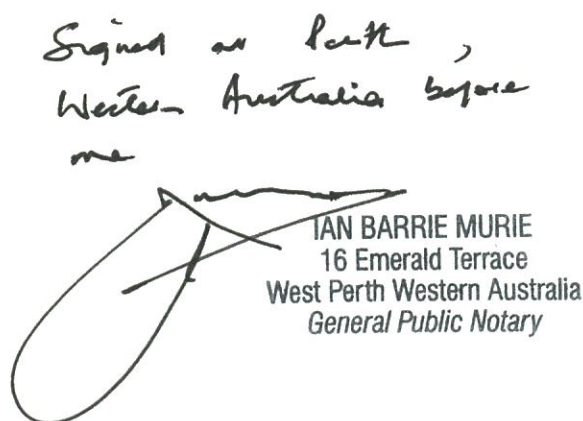 Signed at Perth,
Western Australia before
me
IAN BARRIE MURIE
16 Emerald Terrace
West Perth Western Australia
General Public Notary